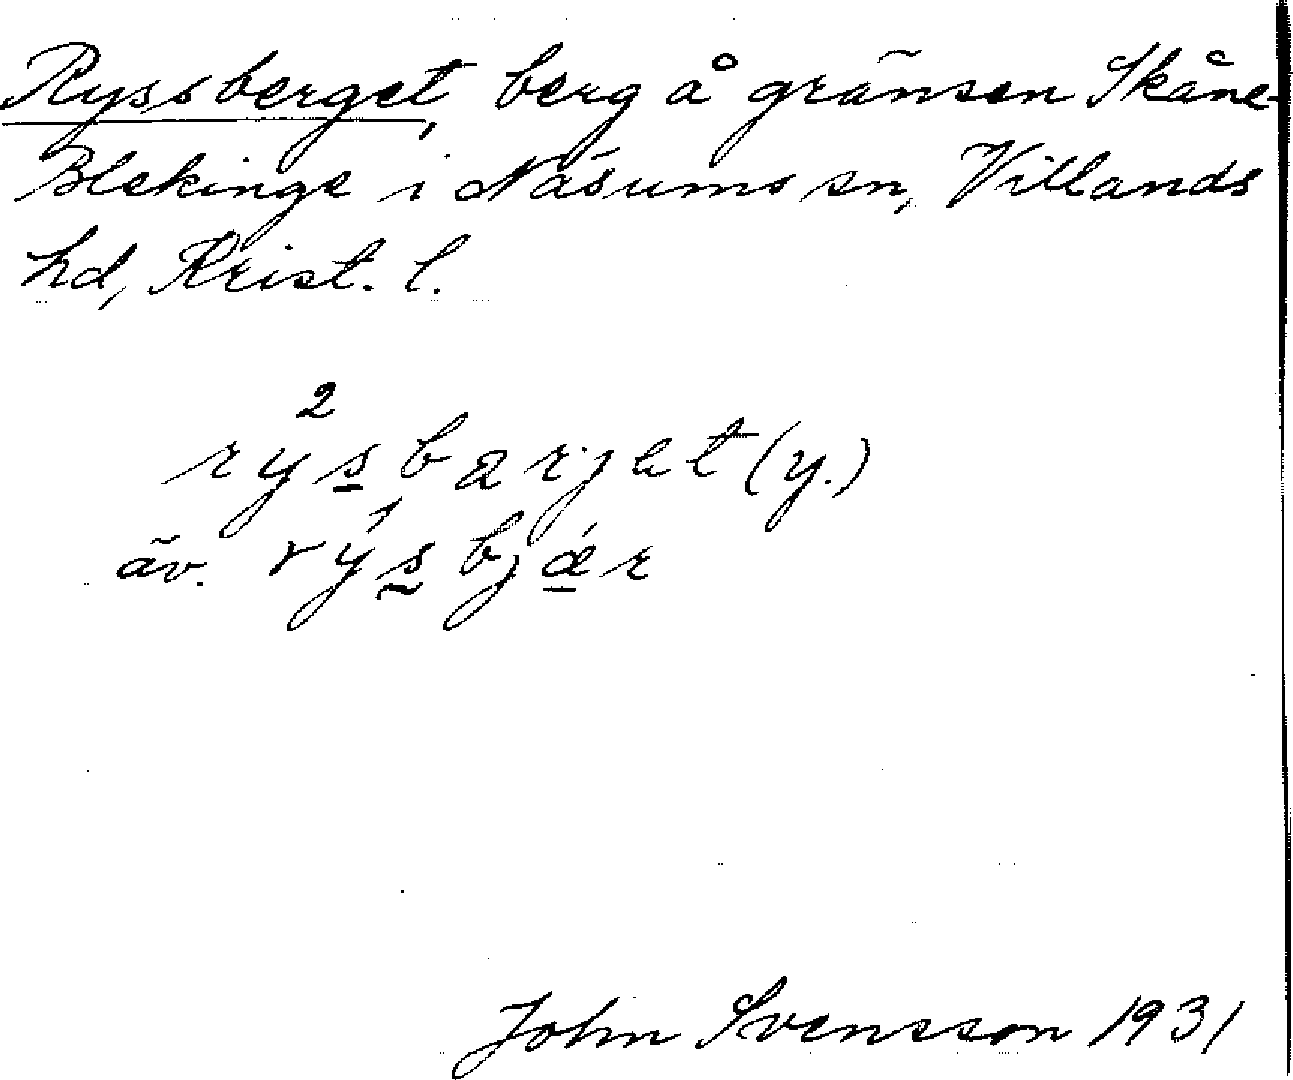 Ryssberget, berg å gränsen Skåne-
Blekinge i Näsums sn, Villands
hd, Krist. l.
2
rysbarjet (y.)
äv. rýsbjær
John Svensson 1931